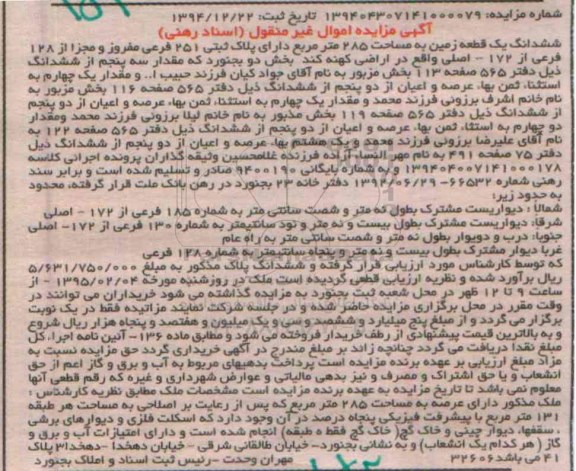 شماره مزایده: ۱۳۹۴۰۴۳۰۷۱۴۱۰۰۰۰۷۹ تاریخ ثبت: ۱۳۹۴/۱۲/۲۲
آگهی مزایده اموال غیر منقول (اسناد رهنی)
ششدانگ یک قطعه زمین به مساحت ۲۸۵ متر مربع دارای پلاک ثبتی ۲۵۱ فرعی مفروز و مجزا از ۱۲۸
فرعی از ۱۷۲ - اصلی واقع در اراضی کهنه کند بخش دو بجنورد که مقدار سه پنجم از ششدانگ
ذیل دفتر ۵۶۵ صفحه ۱۱۳ بخش مزبور به نام آقای جواد کیان فرزند حبیب ا.. و مقدار یک چهارم به
استثناء ثمن بهاء عرصه و اعیان از دو پنجم از ششدانگ ذیل دفتر ۵۶۵ صفحه ۱۱۶ بخش مزبور به
نام خانم اشرف برزونی فرزند محمد و مقدار یک چهارم به استثناء ثمن بهاء عرصه و اعیان از دو پنجم
از ششدانگ ذیل دفتر ۵۶۵ صفحه ۱۱۹ بخش مذبور به نام خانم لیلا برزونی فرزند محمد ومقدار
دو چهارم به استثناء ثمن بهاء عرصه و اعیان از دو پنجم از ششدانگ ذیل دفتر ۵۶۵ صفحه ۱۲۲ به
نام آقای علیرضا برزونی فرزند محمد و یک هشتم بهاء عرصه و اعیان از دو پنجم از ششدانگ ذیل
دفتر ۷۵ صفحه ۴۹۱ به نام مهر النساء آزاده فرزنده غلامحسین وثیقه گذاران پرونده اجرائی کلاسه
۱۳۹۴۰۴۰۰۷۱۴۱۰۰۰۱۷۸ و به شماره بایگانی ۹۴۰۰۱۹۰ صادر و تسلیم شده است و برابر سند
رهنی شماره ۶۶۵۳۲- ۱۳۹۲/۰۶/۲۹ دفتر خانه ۲۳ بجنورد در رهن بانک ملت قرار گرفته، محدود
به حدود زیر:
شمالا : دیواریست مشترک بطول نه متر و شصت سانتی متر به شماره ۱۸۵ فرعی از ۱۷۲ - اصلی
شرقا: دیواریست مشترک بطول بیست و نه متر و نود سانتیمتر به شماره ۱۳۰ فرعی از ۱۷۲- اصلی
جنوبا: درب و دویوار بطول نه متر و شصت سانتی متر به راه عام
غربا دیوار مشترک بطول بیست و نه متر و پنجاه سانتیمتر به شماره ۱۲۸ فرعی
که توسط کارشناس مورد ارزیابی قرار گرفته و ششدانگ پلاک مذکور به مبلغ ۵/۶۳۱/۷۵۰/۰۰۰
ریال برآورد شده و نظریه ارزیابی قطعی گردیده است ملک در روزشنبه مورخه ۱۳۹۵/۰۲/۰۴ - از
ساعت ۹ تا ۱۲ ظهر در محل شعبه ثبت بجنورد به مزایده گذاشته می شود خریداران می توانند در
وقت مقرر در محل برگزاری مزایده حاضر شده و در جلسه شرکت نمایند مزایده فقط در یک نوبت
برگزار می گردد و از مبلغ پنج میلیارد و ششصد و سی و یک میلیون و هفتصد و پنجاه هزار ریال شروع
و به بالاترین قیمت پیشنهادی از طرف خریدار فروخته می شود و مطابق ماده ۱۳۶- آئین نامه اجرا، کل
مبلغ نقدا دریافت می گردد چنانچه زائد بر مبلغ مندرج در آگهی خریداری گردد حق مزایده نسبت به
مزاد مبلغ ارزیابی بر عهده برنده مزایده است پرداخت بدهیهای مربوط به آب و برق و گاز اعم از حق
انشعاب و یا حق اشتراک و مصرف و نیز بدهی مالیاتی و عوارض شهرداری و غیره که رقم قطعی آنها
معلوم نمی باشد تا تاریخ مزایده به عهده برنده مزایده است مشخصات ملک مطابق نظریه کارشناس :
ملک مذکور دارای عرصه به مساحت ۲۸۵ متر مربع که پس از رعایت بر اصلاحی به مساحت هر طبقه
۱۳۱ متر مربع با پیشرفت فیزیکی پنجاه درصد در آن وجود دارد که اسکلت فلزی و دیوارهای برشی
، سقفها، دیوار چینی و خاک گچ( خاک گچ فقط ۵ طبقه) انجام شده است و دارای امتیازات آب و برق و
گاز ( هر کدام یک انشعاب) و به نشانی بجنورد- خیابان طالقانی شرقی - خیابان دهخدا -دهخدا۳ پلاک
۴۱ می باشد ۳۲۶۰۶ مهران وحدت -رئیس ثبت اسناد و املاک بجنورد